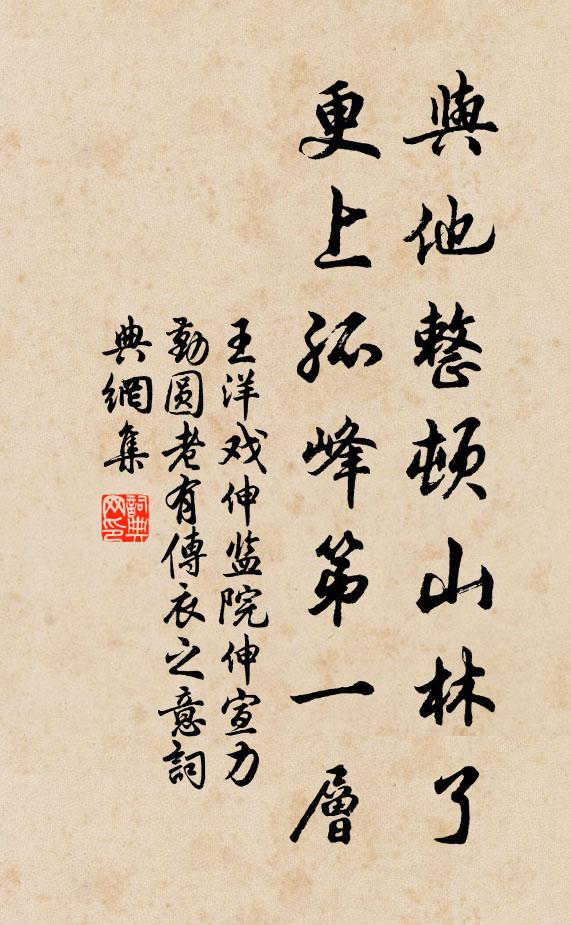 與他整頓山林了
更上孤峰第一層
王洋戏伸监院伸宣力
勤圆老有傳衣之意詞
典網集
詞典
网印